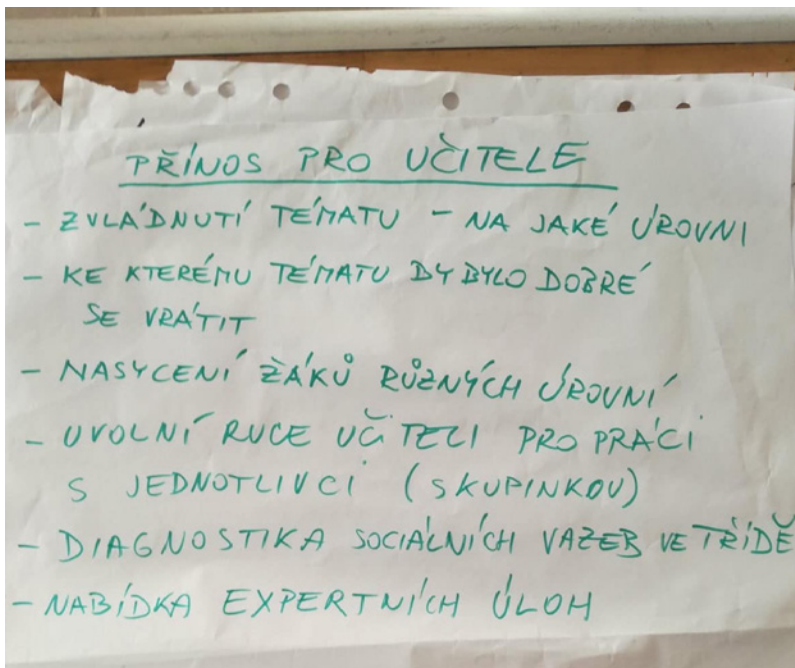 PŘÍNOS PRO UČITELE
- ZVLÁDNUTÍ TÉMATU - NA JAKÉ ÚROVNI
- KE KTERÉMU TÉMATU BY BYLO DOBRÉ
SE VRÁTIT
- NASYCENÍ ŽÁKŮ RŮZNÝCH ÚROVNÍ
- UVOLNÍ RUCE UČITELI PRO PRÁCI
S JEDNOTLIVCI (SKUPINKOU)
- DIAGNOSTIKA SOCIÁLNÍCH VAZEB VE TŘÍDĚ
- NABÍDKA EXPERTNÍCH ÚLOH